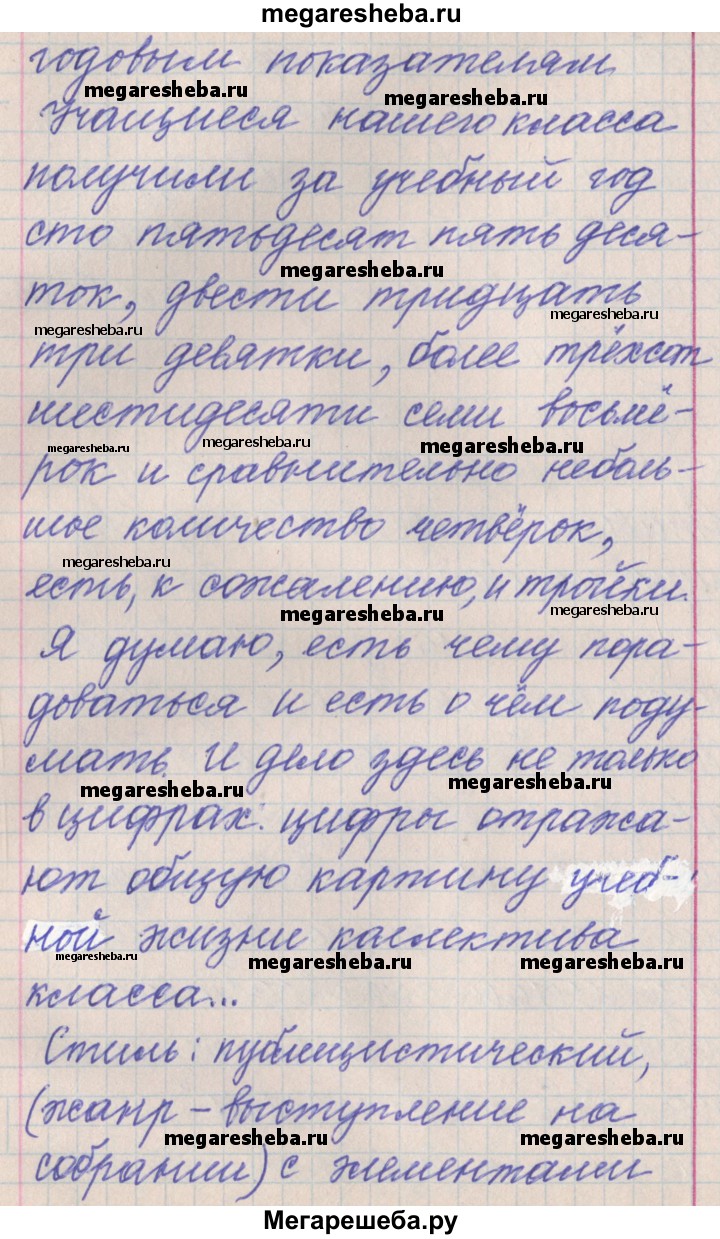 megaresheba.ru
годовым показателям
megaresheba.ru megaresheba.ru
Учащиеся нашего класса
получили за учебный год
сто пятьдесят пять деся-
megaresheba.ru
ток, двести тридцать
megaresheba.ru megaresheba.ru
три девятки, более трёхсот
шестидесяти семи восьмё-
megaresheba.ru megaresheba.ru megaresheba.ru
рок и сравнительно неболь-
шое количество четвёрок,
megaresheba.ru
есть, к сожалению, и тройки.
megaresheba.ru megaresheba.ru
Я думаю, есть чему пора-
доваться и есть о чём поду-
мать. И дело здесь не только
megaresheba.ru megaresheba.ru
в цифрах: цифры отража-
ют общую картину учеб-
ной жизни коллектива
megaresheba.ru megaresheba.ru megaresheba.ru
класса...
Стиль: публицистический,
(жанр – выступление на
megaresheba.ru megaresheba.ru
собрании) с элементами
Мегарешеба.ру